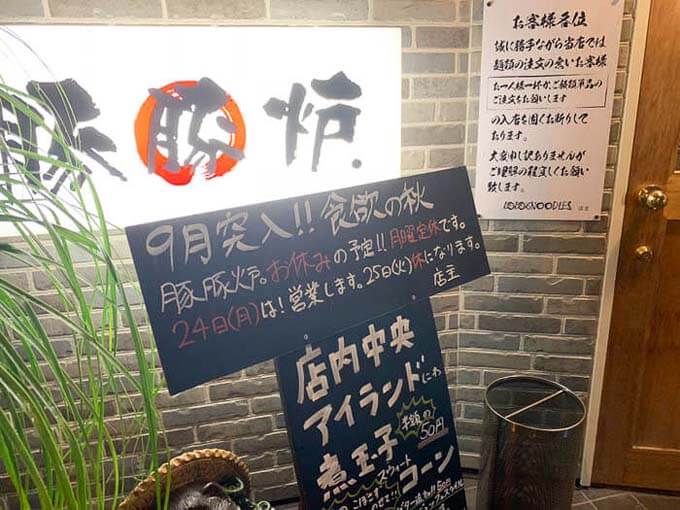 豚豚炉.
お客様各位
誠に勝手ながら当店では
麺類の注文の無いお客様
お一人様一杯か、ご麺類単品の
ご注文をお願いします
の入店を固くお断りして
おります。
大変申し訳ありませんが
ご理解の程宜しくお願い
致します。
9月突入!!食欲の秋
豚豚炉。お休みの予定!!月曜定休です。
24日(月)は!営業します。25日(火)休になります。
店主
店内中央
アイランドにわ
煮玉子
半額の
50円
スウィート
コーン